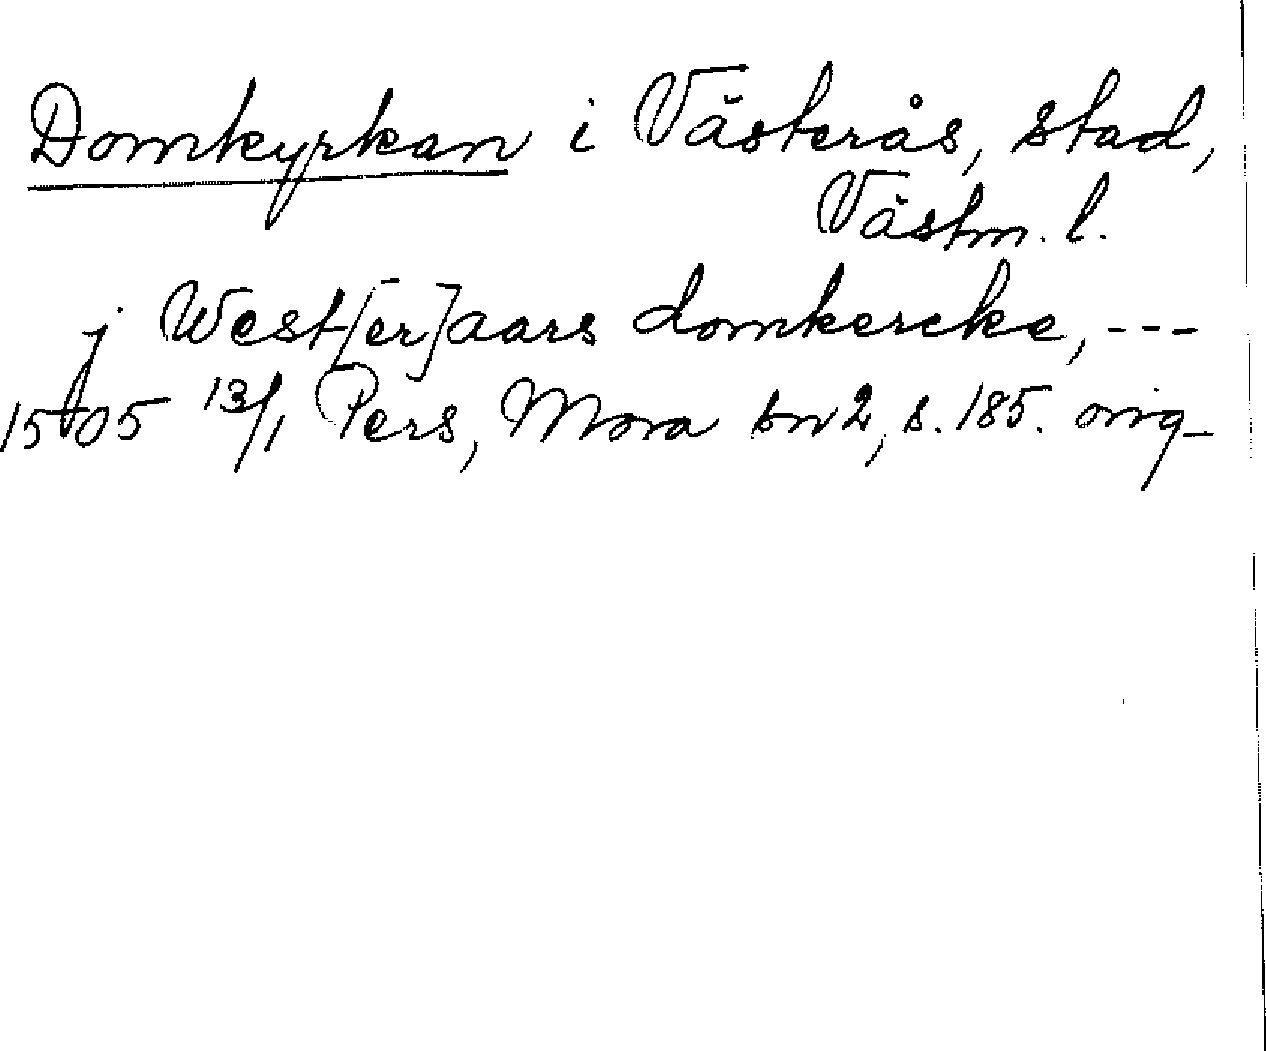 Domkyrkan i Västerås, stad,
Västm. l.
j West[er]aars domkercke, ---
1505 13/1 Pers, Mora bn 2, s. 185. orig